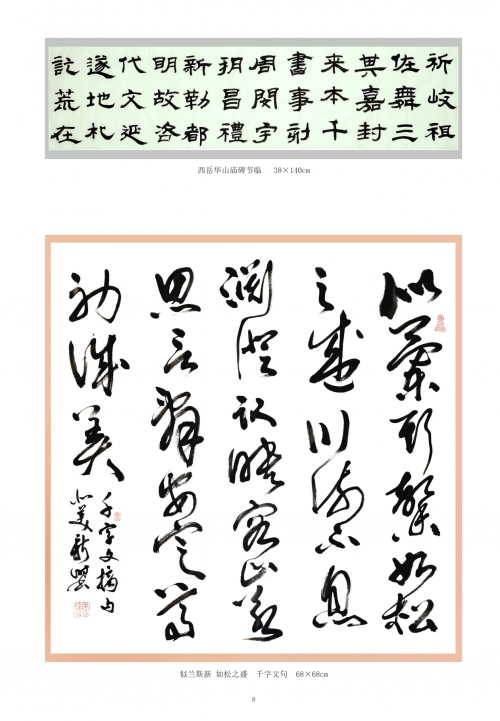 祈岐祖
佐舞三
其嘉封
来本千
書事刻
周閔宇
昌禮
新勒都
明故咨
代文延
遂地札
訖荒在
西岳华山庙碑节临 38×140cm
似蘭斯馨如松
之盛川流不息
渊澄取映容止若
思言辞安定笃
初诚美
千字文摘句
似兰斯新 如松之盛 千字文句 68×68cm
8